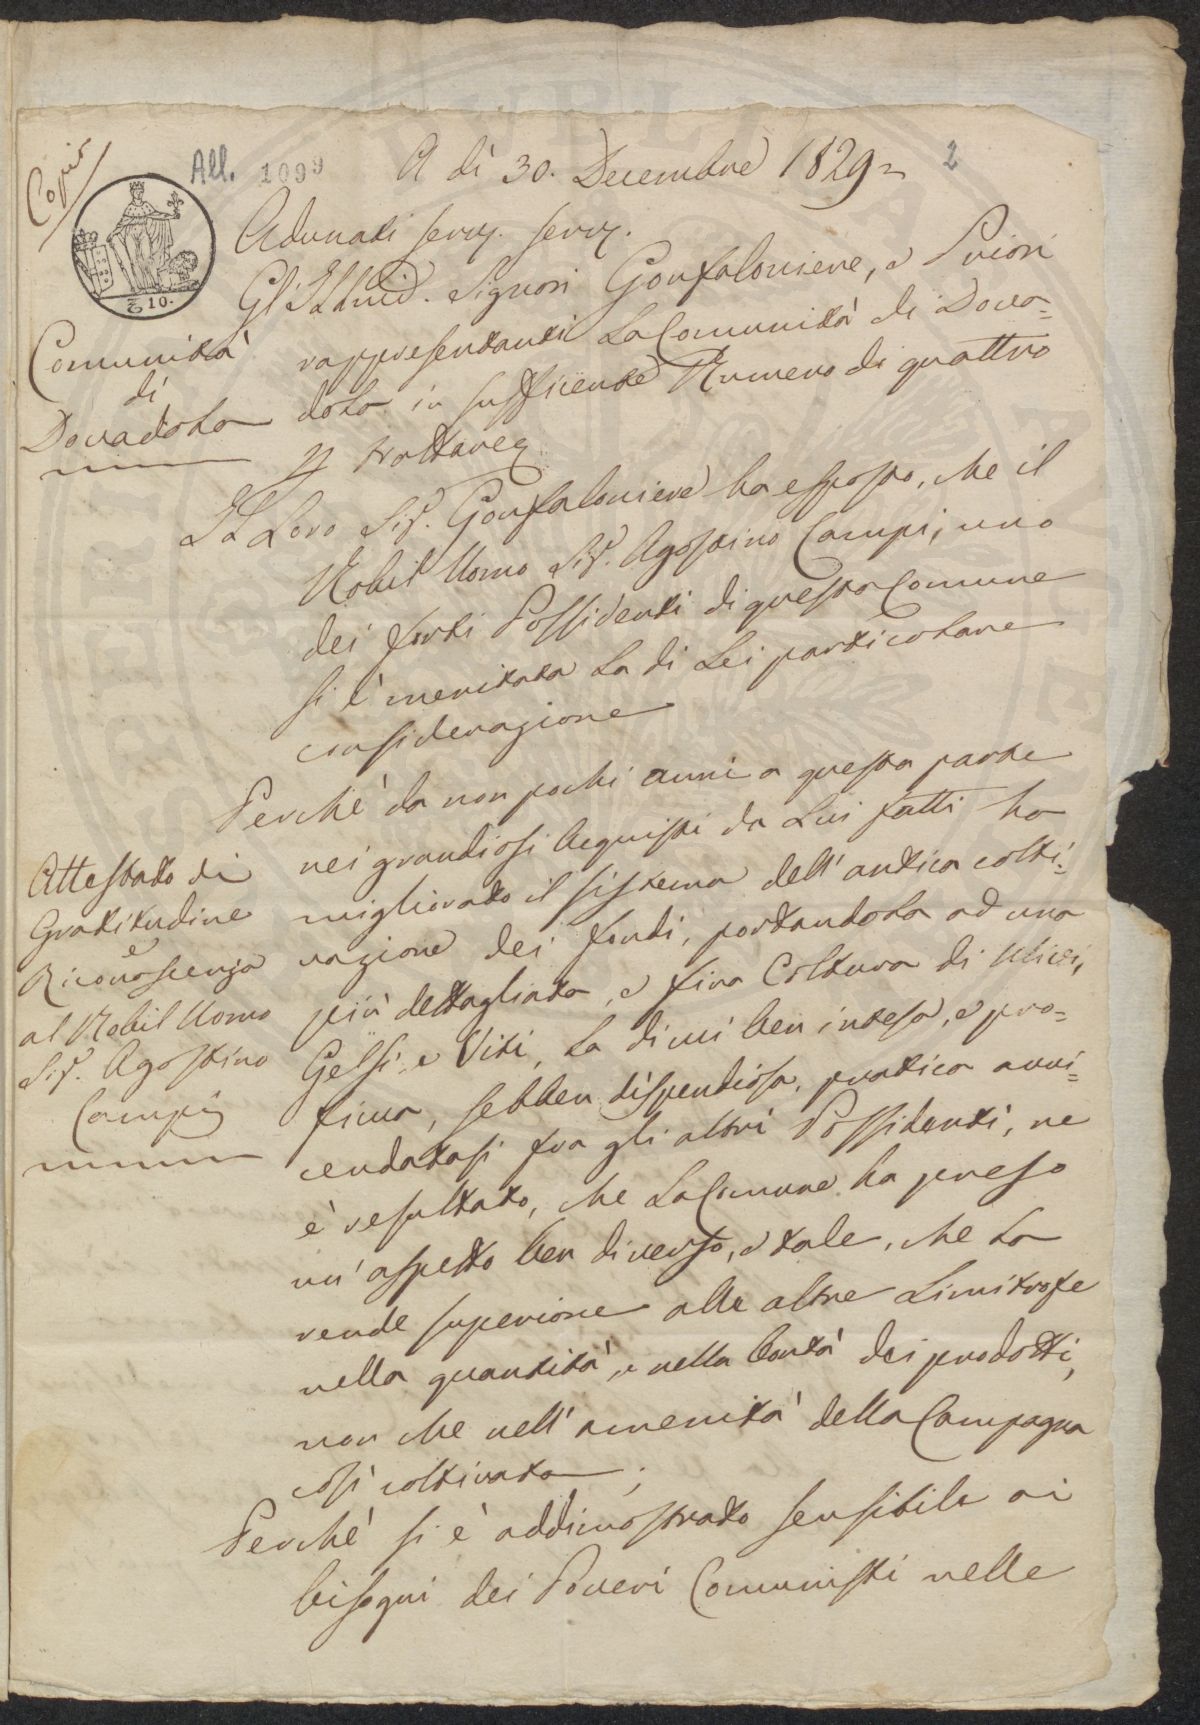 Copia
All. 1099
2
10.
A dì 30. Decembre 1829
Adunati serv. serv.
Gl'Illmi. Signori Gonfaloniere, e Priori
rappresentanti La Comunità di Dova=
dola in sufficiente Numero di quattro
p trattare
Comunità
di
Dovadola
Il Loro Sig. Gonfaloniere ha esposto, che il
Nobil Uomo Sig. Agostino Campi, uno
dei forti Possidenti di questa Comune
si è meritata La di Lei particolare
considerazione
Perchè da non pochi anni a questa parte
nei grandiosi Acquisti da Lui fatti ha
migliorato il sistema dell'antica colti=
vazione dei fondi, portandola ad una
più dettagliata, e fina Coltura di Ulivi,
Gelsi, e Viti, La di cui ben intesa, e pro=
ficua, sebben dispendiosa, pratica avvi=
cendatasi fra gli altri Possidenti, ne
è resultato, che La Comune ha preso
un'aspetto ben diverso, e tale, che La
rende superiore alle altre Limitrofe
nella quantità, e nella bontà dei prodotti,
non che nell'amenità della Campagna
così coltivata ;
Perchè si è addimostrato sensibile ai
bisogni dei Poveri Comunisti nelle
Attestato di
Gratitudine
e
Riconoscenza
al Nobil Uomo
Sig. Agostino
Campi